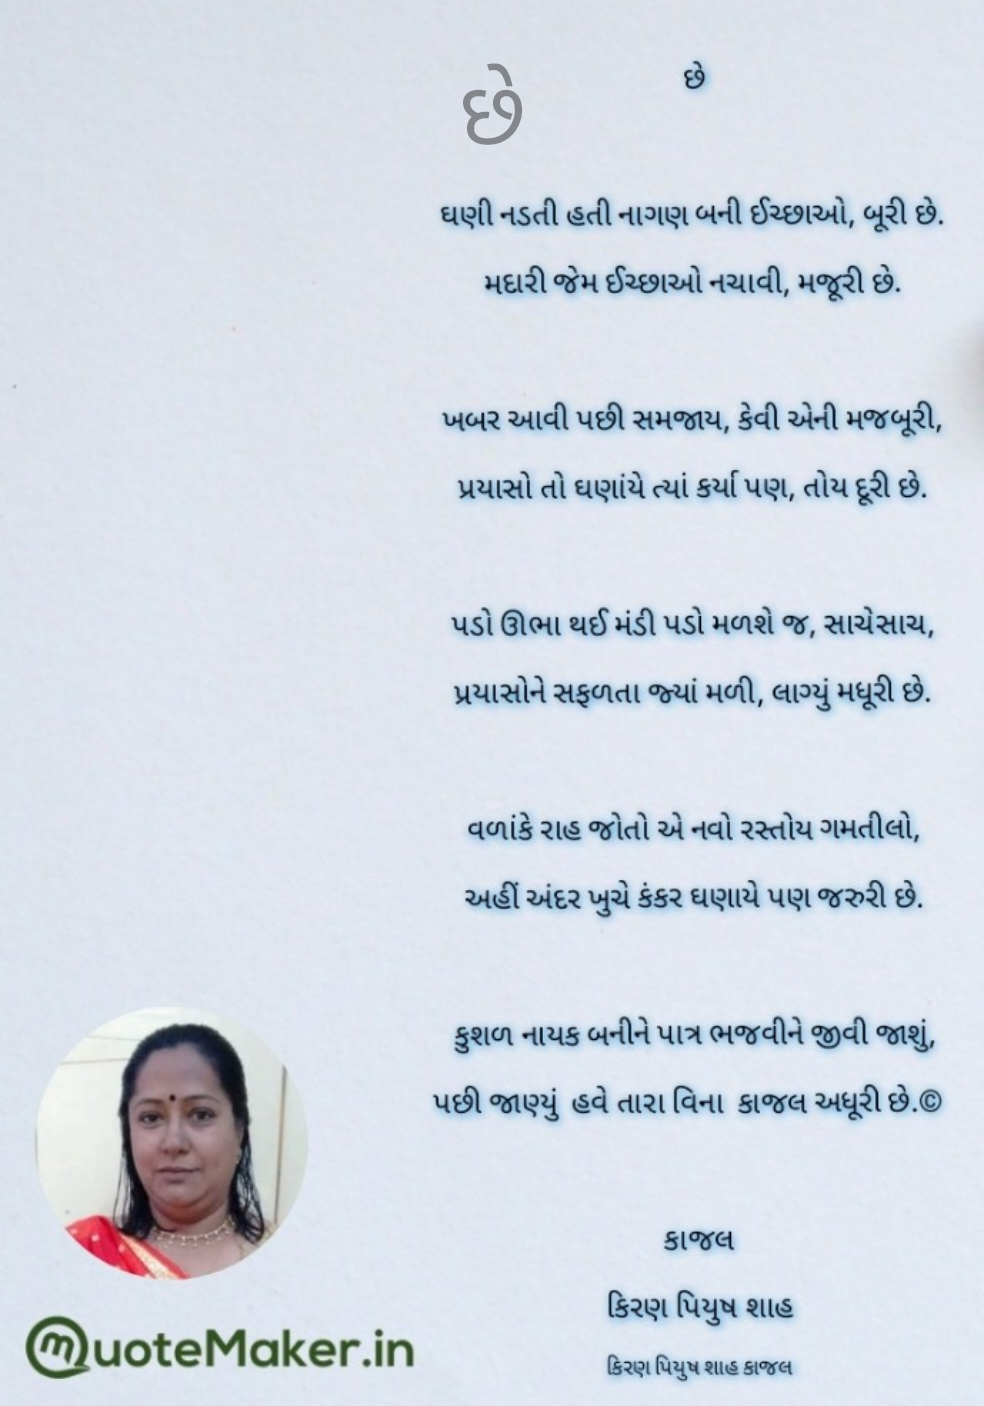 છે
છે
ઘણી નડતી હતી નાગણ બની ઈચ્છાઓ, બૂરી છે.
મદારી જેમ ઈચ્છાઓ નચાવી, મજૂરી છે.
ખબર આવી પછી સમજાય, કેવી એની મજબૂરી,
પ્રયાસો તો ઘણાંયે ત્યાં કર્યા પણ, તોય દૂરી છે.
પડો ઊભા થઈ મંડી પડો મળશે જ, સાચેસાચ,
પ્રયાસોને સફળતા જ્યાં મળી, લાગ્યું મધૂરી છે.
વળાંકે રાહ જોતો એ નવો રસ્તોય ગમતીલો,
અહીં અંદર ખુચે કંકર ઘણાયે પણ જરુરી છે.
કુશળ નાયક બનીને પાત્ર ભજવીને જીવી જાશું,
પછી જાણ્યું હવે તારા વિના કાજલ અધૂરી છે.©
કાજલ
કિરણ પિયુષ શાહ
કિરણ પિયુષ શાહ કાજલ
QuoteMaker.in